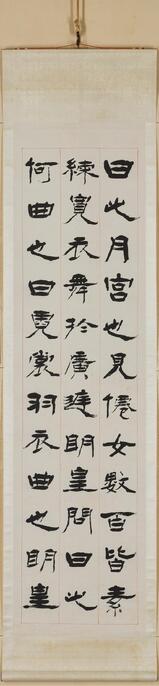 曰此月宮也見僊女數百皆素
練寬衣舞於廣庭明皇問曰此
何曲也曰霓裳羽衣曲也明皇